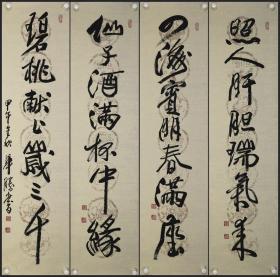 照人肝胆瑞气来
四海宾朋春满座
仙子酒满杯中缘
碧桃献上岁三千
甲午年秋